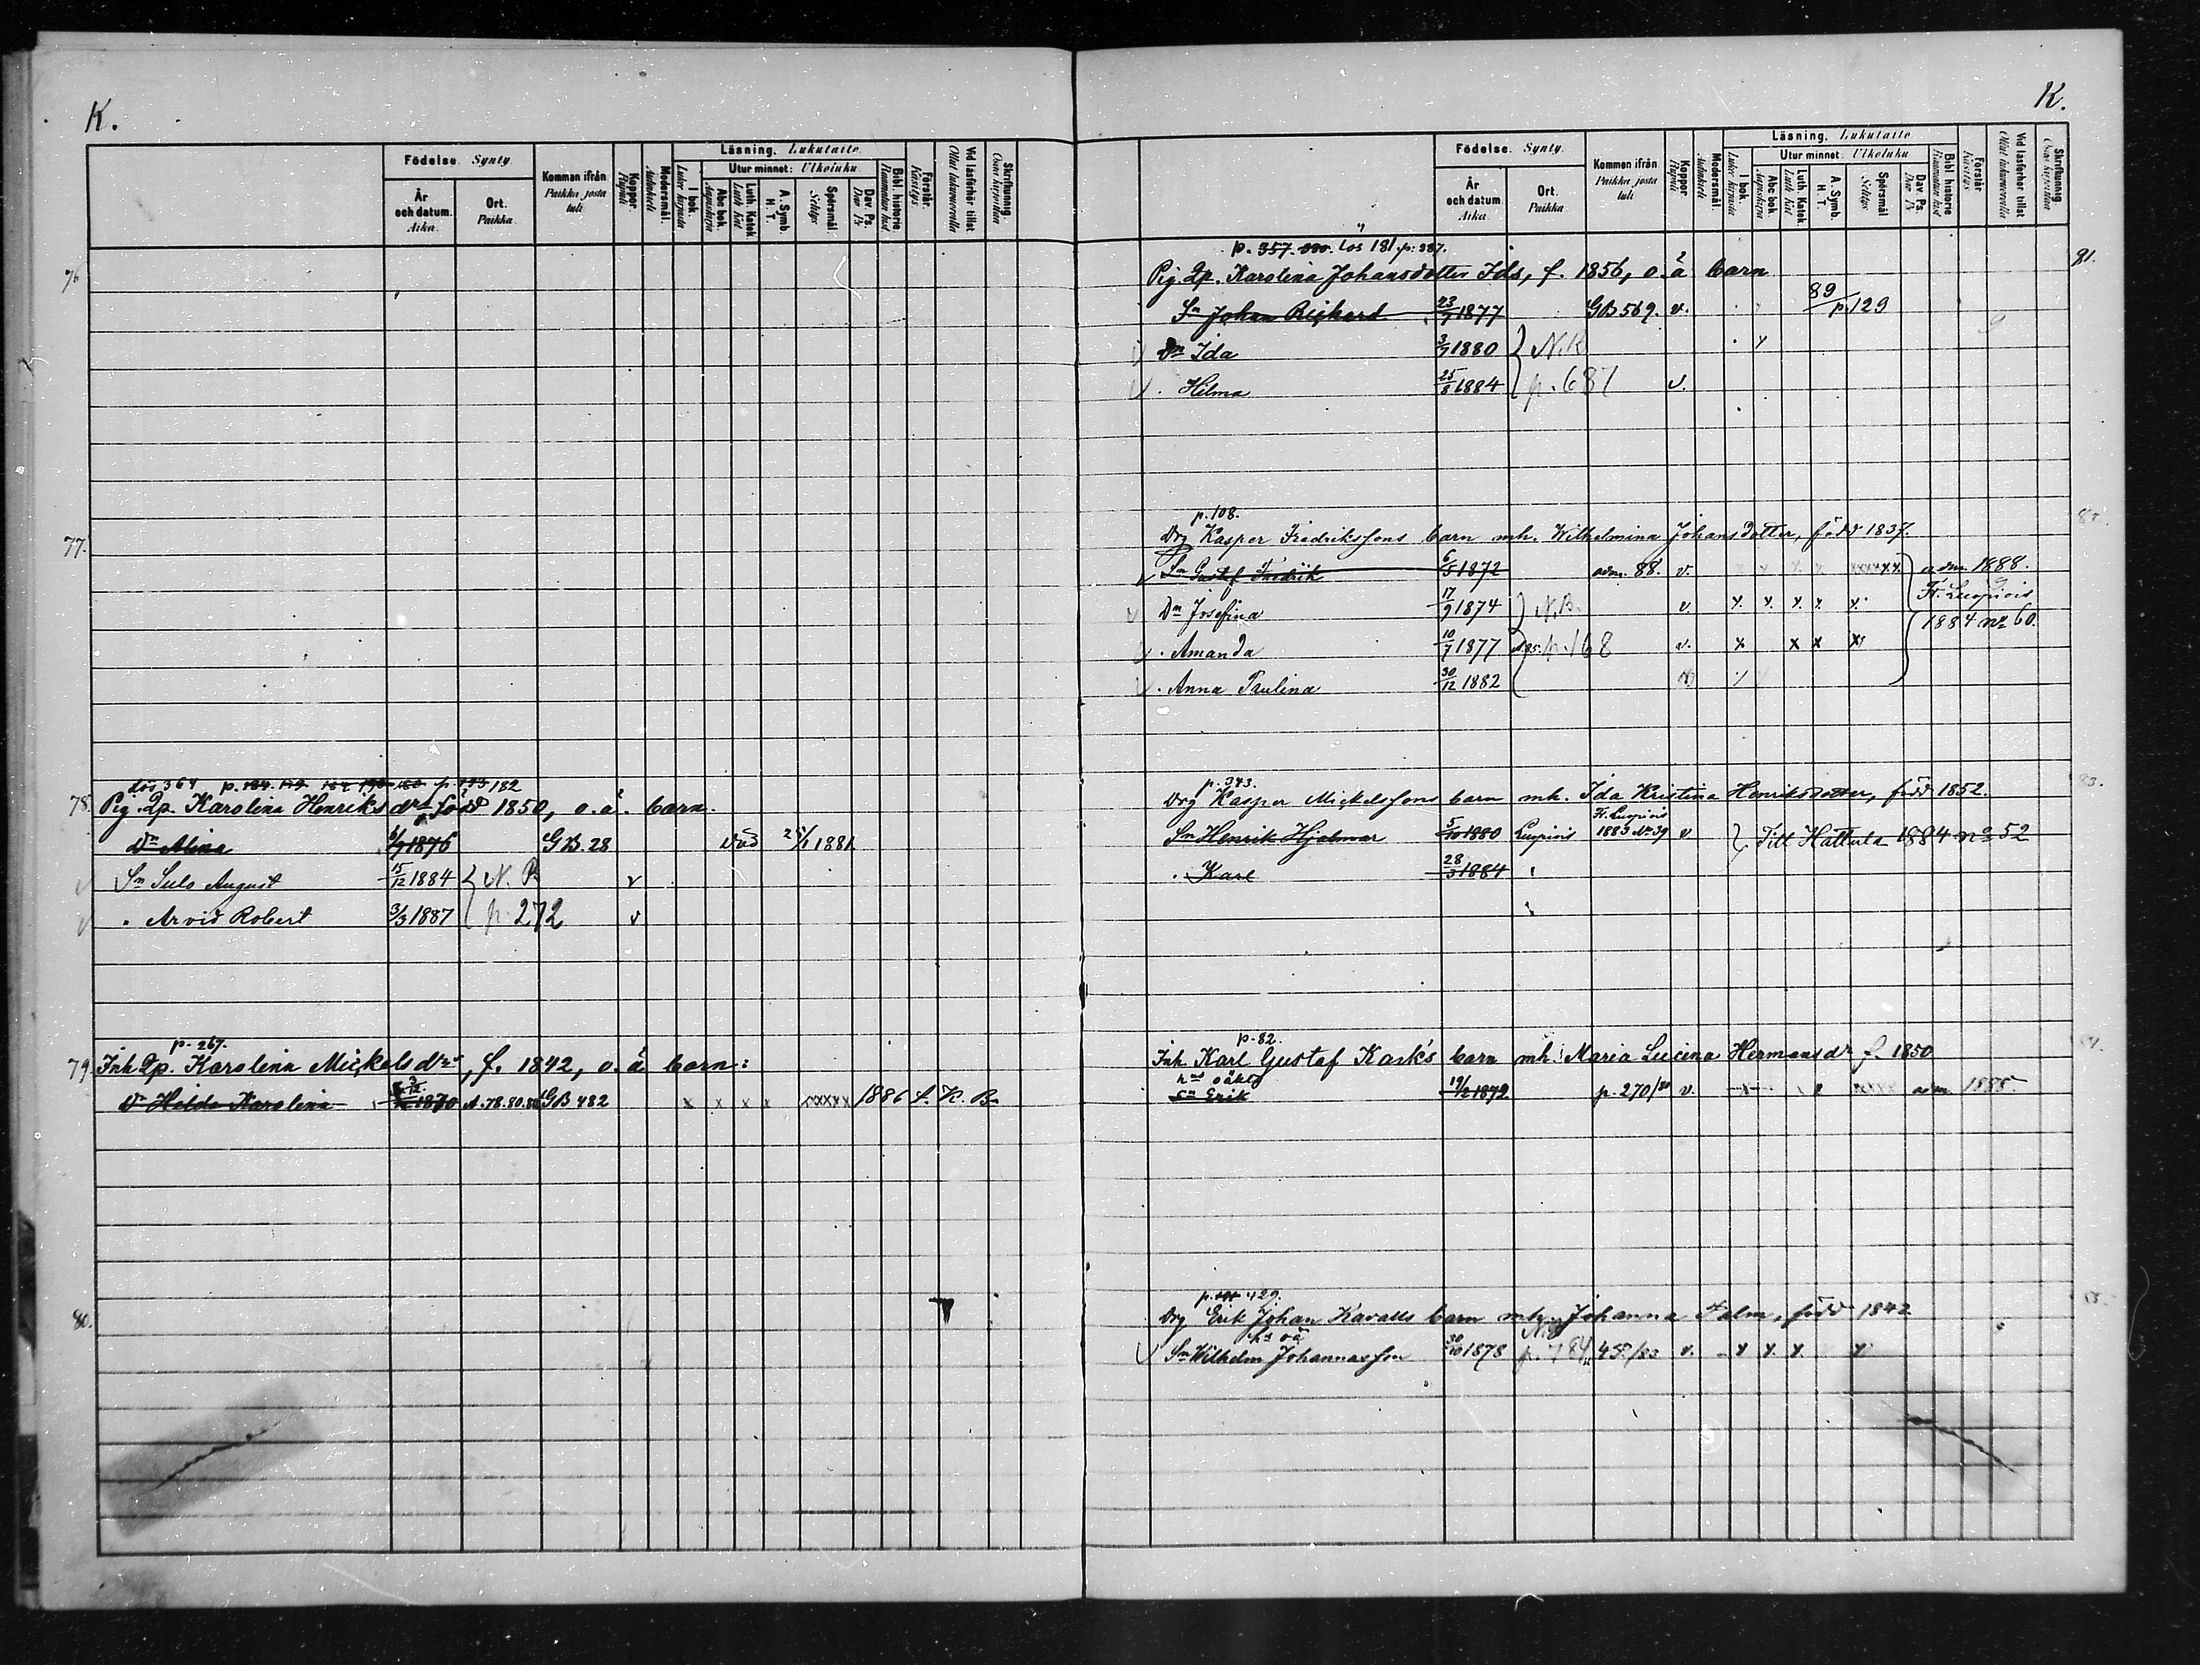 K.
Födelse. Synty.
År och datum. Aika.
Ort. Paikka.
Kommen ifrån. Paikka josta tuli.
Koppor. Rupuli
Modersmål. Äidinkieli
Läsning. Lukutaito
I bok. Luku kirjasta
Utur minnet: Ulkoluku
Abc bok. Aapiskirja
Luth. Katek. Luth. Kat.
A. Symb. H. T.
Spörsmål Selitys
Dav. Ps. Dav. Ps.
Bibl. historie Raamatun hist.
Förstår Käsitys
Vid läsförhör tillst. Ollut lukuvuorolla
Skrifkunnig. Osaa kirjoittaa
76
77.
dös 364 p. 184. 179 184 190 180 p. 193 182
78. Pig. Qp. Karolina Henriks drs född 1850, o.ä. barn.
Dn Alina 6/7 1876 G.B. 28 död 25/1 1881
Sn Sulo August 15/12 1884 N. B. v
. Arvid Robert 3/3 1887 p. 272 v
p. 267.
79. Inh. Qp. Karolina Mickels drs, f. 1842, o. ä barn:
Dr Hilda Karolina 1870 A. 78.80.80 GB 482 x x x x xxxxx 1886 f. K. B.
80.
K.
Födelse. Synty.
År och datum. Aika.
Ort. Paikka.
Kommen ifrån. Paikka josta tuli.
Koppor. Rupuli
Modersmål. Äidinkieli
Läsning. Lukutaito
I bok. Luku kirjasta
Utur minnet: Ulkoluku
Abc bok. Aapiskirja
Luth. Katek. Luth. Kat.
A. Symb. H. T.
Spörsmål Selitys
Dav. Ps. Dav. Ps.
Bibl. historie Raamatun hist.
Förstår Käsitys
Vid läsförhör tillst. Ollut lukuvuorolla
Skrifkunnig. Osaa kirjoittaa
p. 357. lös 181. p. 387.
Pig. Qp. Karolina Johansdotter Ids, f. 1856, o. ä barn 81.
Sn Johan Rickard 23/7 1877 GB 569. v. 89/p. 129
Dn Ida 3/7 1880 N.B
. Hilma 25/8 1884 p. 687 v.
p. 108.
Drg Kasper Fredrikssons barn mh. Wilhelmina Johansdotter, född 1837.
Sn Gustaf Fredrik 6/5 1872 adm. 88. v. x x x x xxxxxx adm 1888.
Dn Josefina 17/9 1874 N.B. v. x. x. x. x. x. Fr. Luopiois
. Amanda 10/7 1877 p. 168 v. x x x x 1884 No 60.
. Anna Paulina 30/12 1882
p. 343.
Drg Kasper Mickelssons barn mh. Ida Kristina Henriksdotter, född 1852. 83.
Fr. Luopiois
Sn Henrik Hjalmar 5/10 1880 Luopiois 1883 No 39 v Till Hattula 1884 No 52
. Karl 28/3 1884
p. 82.
Inh. Karl Gustaf Kask's barn mh. Maria Lucina Hermansdr f. 1850
hus oäkta
Sn Erik 19/2 1872 p. 270/80 v. x x xxxx adm. 1888
p. 429.
Drg Erik Johan Kavalls barn mh. Johanna Palm, född 1842
hs oä
Sn Wilhelm Johannasson 30/10 1878 p. 784 458/83 v. x x. x. x